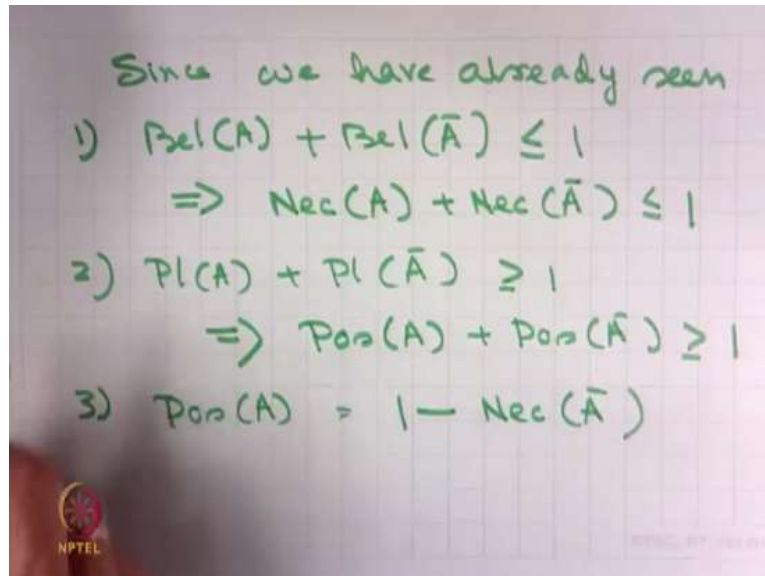 Since we have already seen
1) Bel(A) + Bel(Ā) ≤ 1
⇒ Nec(A) + Nec(Ā) ≤ 1
2) Pl(A) + Pl(Ā) ≥ 1
⇒ Pos(A) + Pos(Ā) ≥ 1
3) Pos(A) = 1 − Nec(Ā)
NPTEL